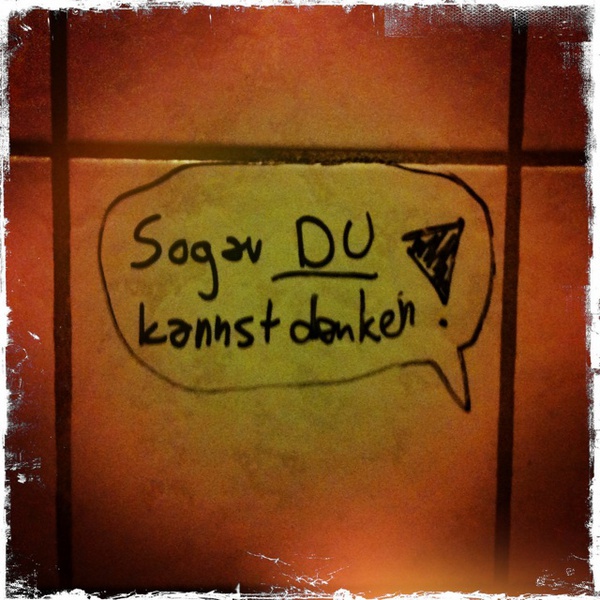 Sogar DU
kannst danken!